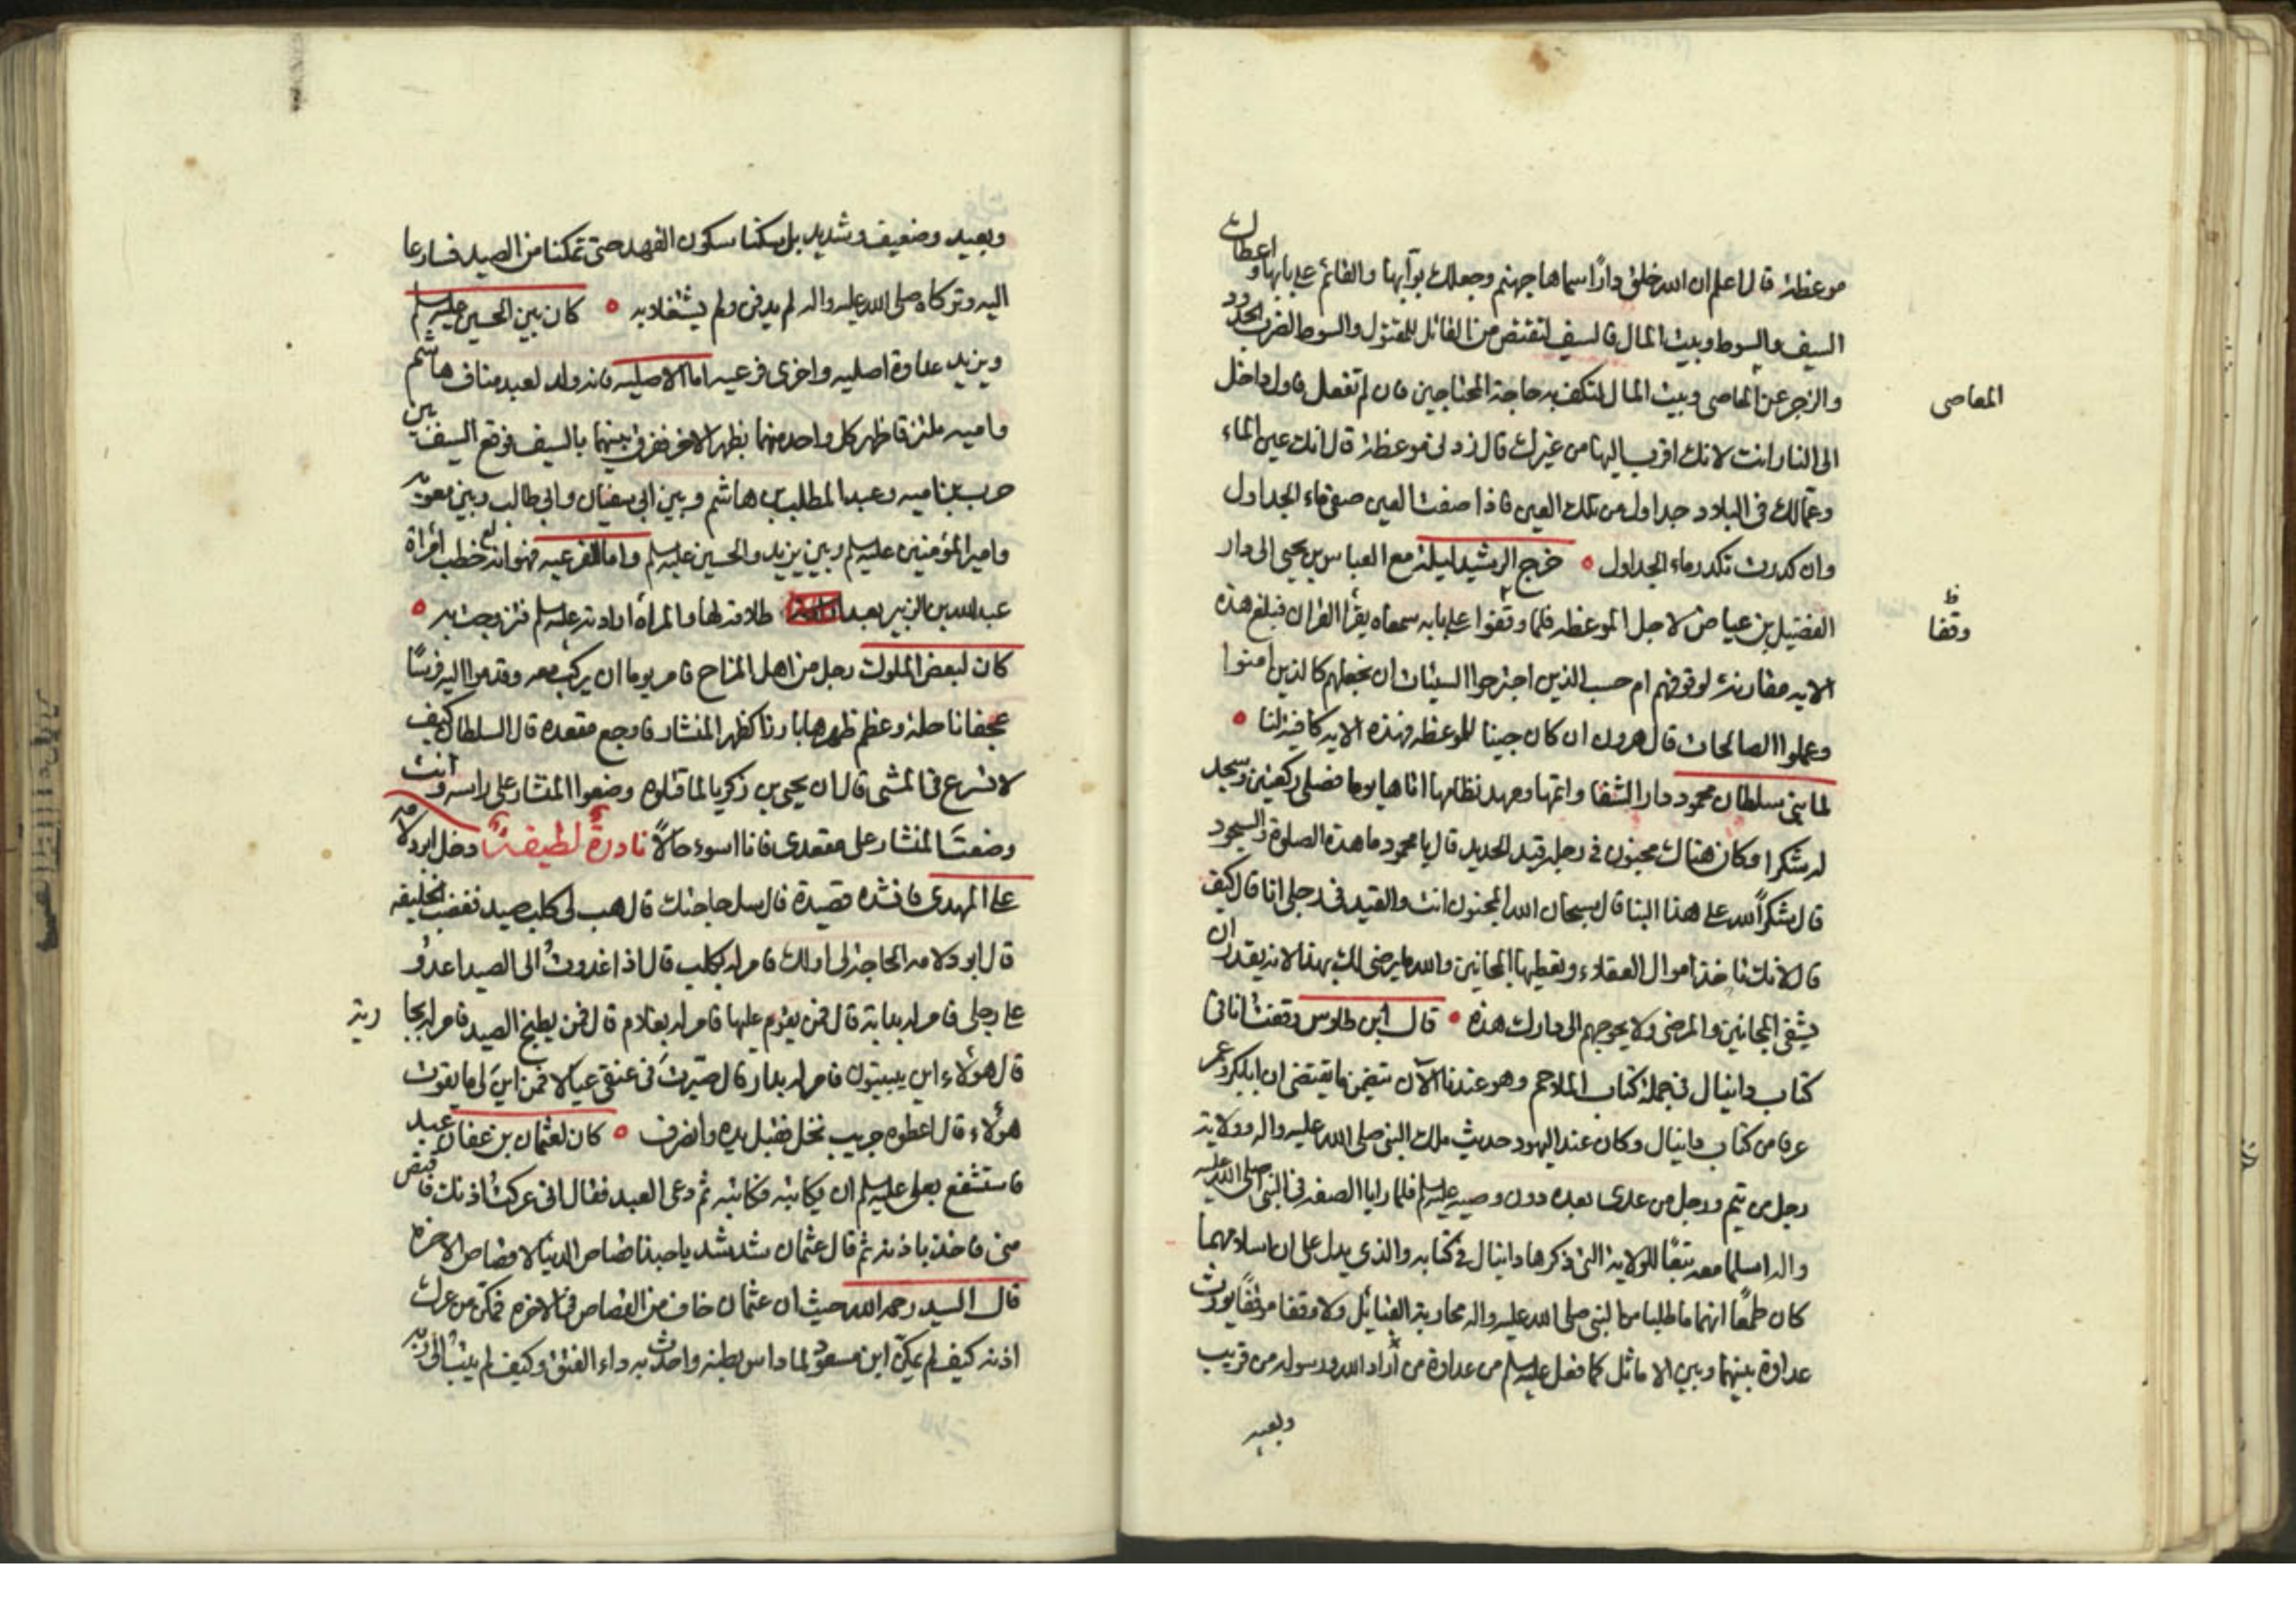 موعظة قال اعلم ان الله خلق دارًا اسماها جهنم وجعلك بوّابها والقائم على بابها واعطاك
السيف والسوط وبيت المال فالسيف لتقتص من القاتل للمقتول والسوط لضرب الحدود
والزجر عن المعاصى وبيت المال لتكف به حاجة المحتاجين فان لم تفعل فاول داخل
المعاصى
الى النار انت لانك اقرب اليها من غيرك قال زدنى موعظة قال انك عين الماء
وعمالك فى البلاد جداول من تلك العين فاذا صفت العين صفى ماء الجداول
وان كدرت تكدر ماء الجداول ۰ خرج الرشيد ليلة مع العباس بن يحيى الى دار
الفضيل بن عياض لاجل الموعظه فلما وقفوا على بابه سمعاه يقرأ القران فبلغ هذه
ظ
وقفا
الايه مقارنة لوقوفهم ام حسب الذين اجترحوا السيئات ان نجعلهم كالذين امنوا
وعملوا الصالحات قال هرون ان كان جينا للموعظه فهذه الايه كافية لنا ۰
لما بنى سلطان محمود دار الشفا واتمها ومهد نظامها اتاها يوما فصلى ركعتين وسجد
لله شكرا وكان هناك مجنون فى رجله قيد الحديد قال يا محمود ما هذه الصلوة والسجود
قال شكراً لله على هذا البنا قال سبحان الله المجنون انت والقيد فى رجلى انا قال كيف
قال لانك تاخذ اموال العقلاء وتعطيها المجانين والله ما يرضى لك بهذا لانه يقدر ان
يشفى المجانين والمرضى ولا يحوجهم الى دارك هذه ۰ قال ابن طاوس وقفت انا فى
كتاب دانيال فى جملة كتاب الملاحم وهو عندنا الآن يتضمن ما يقتضى ان ابابكر وعمر
عرفا من كتاب دانيال وكان عند اليهود حديث ملك النبى صلى الله عليه واله وولاية
رجل من تيم ورجل من عدى بعده دون وصيه عليه السلم فلما رايا الصفه فى النبى صلى الله عليه
واله اسلما معه تبعًا للولاية التى ذكرها دانيال فى كتابه والذى يدل على ان اسلامهما
كان طمعًا انهما ما طلبا من النبى صلى الله عليه واله محاربة القبائل ولا وقفا موقفًا يورث
عداوة بينهما وبين الاماثل كما فعل عليه السلم من عداوة من أراد الله ورسوله من قريب
وبعيد
وبعيد وضعيف وشديد بل سكتا سكون الفهد حتى تمكنا من الصيد فسارعا
اليه وتركاه صلى الله عليه واله لم يدفن ولم يشتغلا به ۰ كان بين الحسين عليه السلم
ويزيد عداوة اصليه واخرى فرعيه اما الاصليه فانه ولد لعبد مناف هاشم
واميه ملتزقا ظهر كل واحد منهما بظهر الاخر ففرق بينهما بالسيف فوقع السيف بين
حرب بن اميه وعبد المطلب بن هاشم وبين ابى سفيان وابى طالب وبين معويه
وامير المؤمنين عليه السلم وبين يزيد والحسين عليه السلم واما الفرعيه فهو انه خطب امرأة
عبدالله بن الزبير بعد طلاقه لها والمرأه ارادته عليه السلم فتزوجت به ۰
كان لبعض الملوك رجل من اهل المزاح فامر يوما ان يركب معه وقدموا اليه فرسًا
عجفا ناحلة وعظم ظهرها بارزا كظهر المنشار فاوجع مقعده قال السلطان كيف
لا تسرع فى المشى قال ان يحيى بن زكريا لما قتلوه وضعوا المنشار على راسه وانت
وضعتَ المنشار على مقعدى فانا اسوء حالًا نادرةٌ لطيفةٌ دخل ابودلامه
على المهدى فانشده قصيدة قال سل حاجتك قال هب لى كلب صيد فغضب الخليفه
قال ابو دلامه الحاجة لى او لك فامر له بكلب قال اذا غدوتُ الى الصيد اعدو
على رجلى فامر له بدابة قال فمن يقوم عليها فامر له بغلام قال فمن يطبخ الصيد فامر له بجا
رية
قال هؤلاء اين يبيتون فامر له بدار قال صيّرتَ فى عنقى عيالا فمن اين لى ما يقوت
هؤلاء قال اعطوه جريب نخل فقبل يده وانصرف ۰ كان لعثمان بن عفان عبد
فاستشفع بعلى عليه السلم ان يكاتبه فكاتبه ثم دعى العبد فقال انى عركت اذنك فاقتص
منى فاخذ باذنه ثم قال عثمان شد شد ياحبذا قصاص الدنيا لا قصاص الاخره
قال السيد رحمه الله حيث ان عثمان خاف من القصاص فى الاخره فمكّن من عرك
اذنه كيف لم يمكّن ابن مسعود لما داس بطنه واحدث به داء الفتق وكيف لم